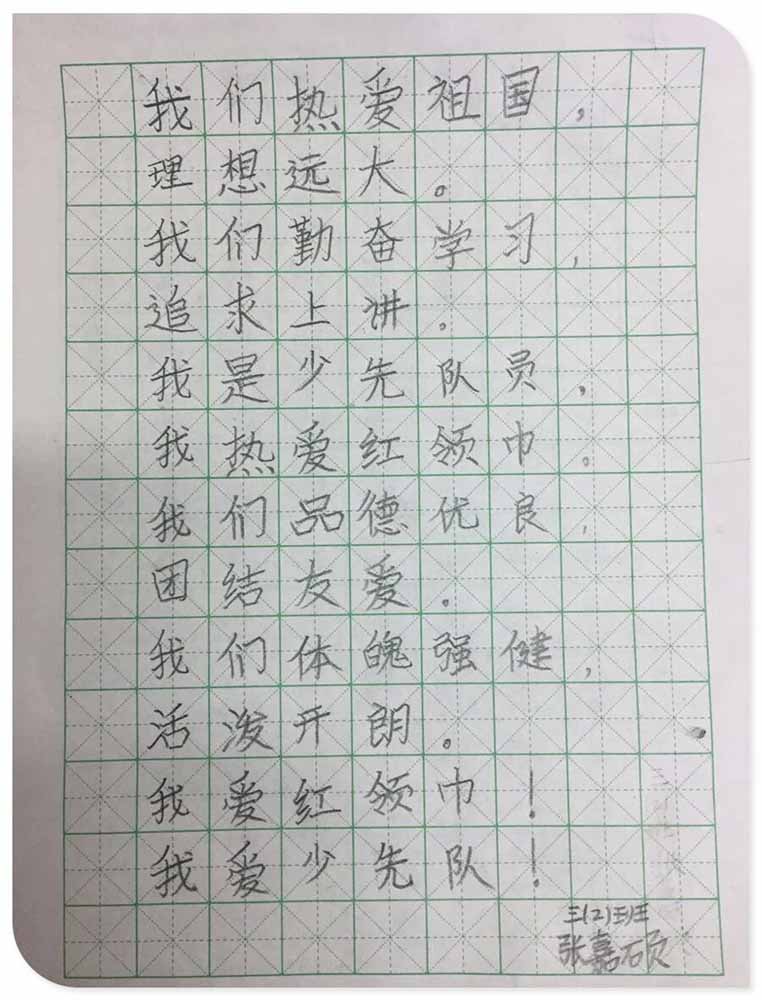 我们热爱祖国，
理想远大。
我们勤奋学习，
追求上讲。
我是少先队员，
我热爱红领巾。
我们品德优良，
团结友爱。
我们体魄强健，
活泼开朗。
我爱红领巾！
我爱少先队！
三(2)班
张嘉硕